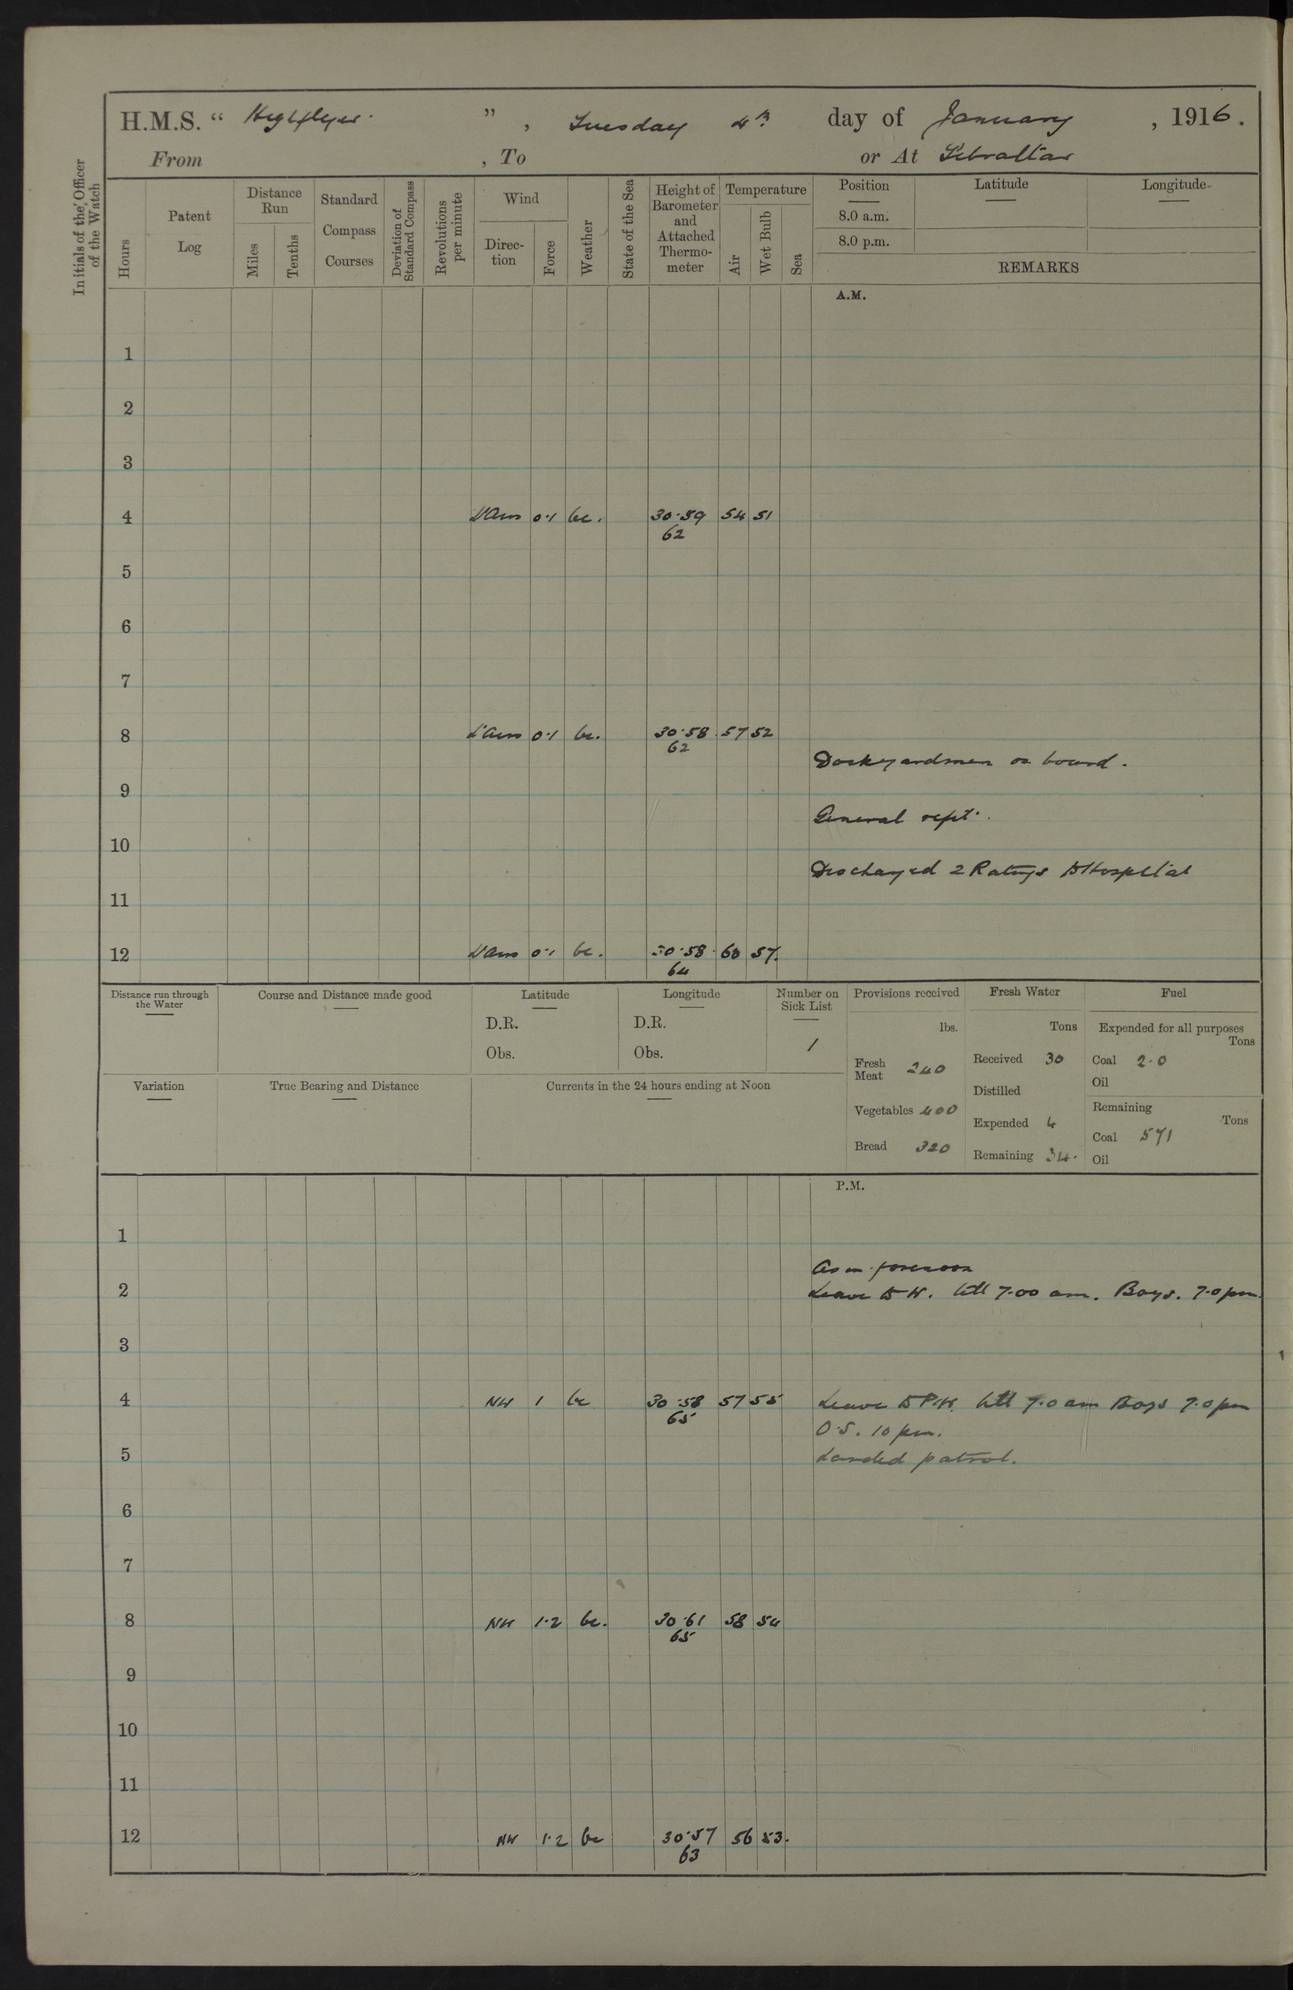 H.M.S. “ Highflyer ” , Tuesday 4th day of January , 1916 .
From , To or At Gibraltar
Initials of the Officer of the Watch
Hours
Patent Log
Distance Run
Miles
Tenths
Standard Compass Courses
Deviation of Standard Compass
Revolutions per minute
Wind
Direction
Force
Weather
State of the Sea
Height of Barometer and Attached Thermometer
Temperature
Air
Wet Bulb
Sea
Position Latitude Longitude
8.0 a.m.
8.0 p.m.
REMARKS
A.M.
1
2
3
4 0·1 bc. 30·59 54 51
62
5
6
7
8 0·1 bc. 30·58 57 52
62
Dockyardmen on board.
9
General refit.
10
Discharged 2 Ratings to Hospital
11
12 0·1 bc. 30·58 60 57.
64
Distance run through the Water
Course and Distance made good
Latitude
D.R.
Obs.
Longitude
D.R.
Obs.
Number on Sick List
1
Provisions received
lbs.
Fresh Meat 240
Vegetables 400
Bread 320
Fresh Water
Tons
Received 30
Distilled
Expended 4
Remaining 34.
Fuel
Expended for all purposes
Tons
Coal 20
Oil
Remaining
Tons
Coal 571
Oil
Variation
True Bearing and Distance
Currents in the 24 hours ending at Noon
P.M.
1
As in forenoon
2 Leave to W. till 7.00 am. Boys. 7.0 pm.
3
4 NW 1 bc 30·58 57 55 Leave to P.W. till 7.0 am Boys 7.0 pm
65 O.S. 10 pm.
5 Landed patrol.
6
7
8 NW 1·2 bc. 30·61 58 54
65
9
10
11
12 NW 1·2 bc 30·57 56 53.
63